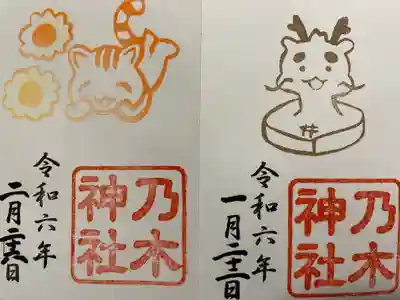 乃木
神社
令和六年
二月二日
乃木
神社
令和六年
一月二十二日